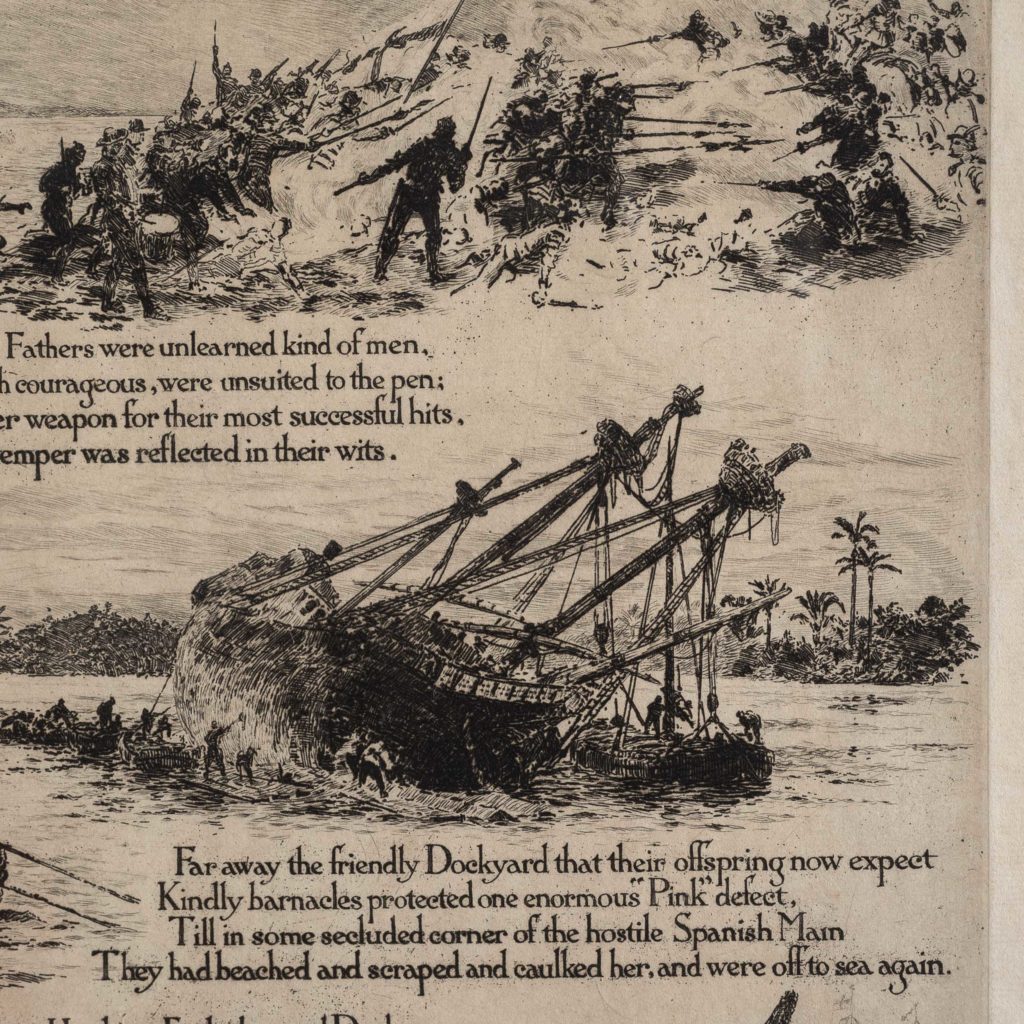 Fathers were unlearned kind of men,
h courageous, were unsuited to the pen;
er weapon for their most successful hits,
emper was reflected in their wits.
Far away the friendly Dockyard that their offspring now expect
Kindly barnacles protected one enormous "Pink" defect,
Till in some secluded corner of the hostile Spanish Main
They had beached and scraped and caulked her, and were off to sea again.